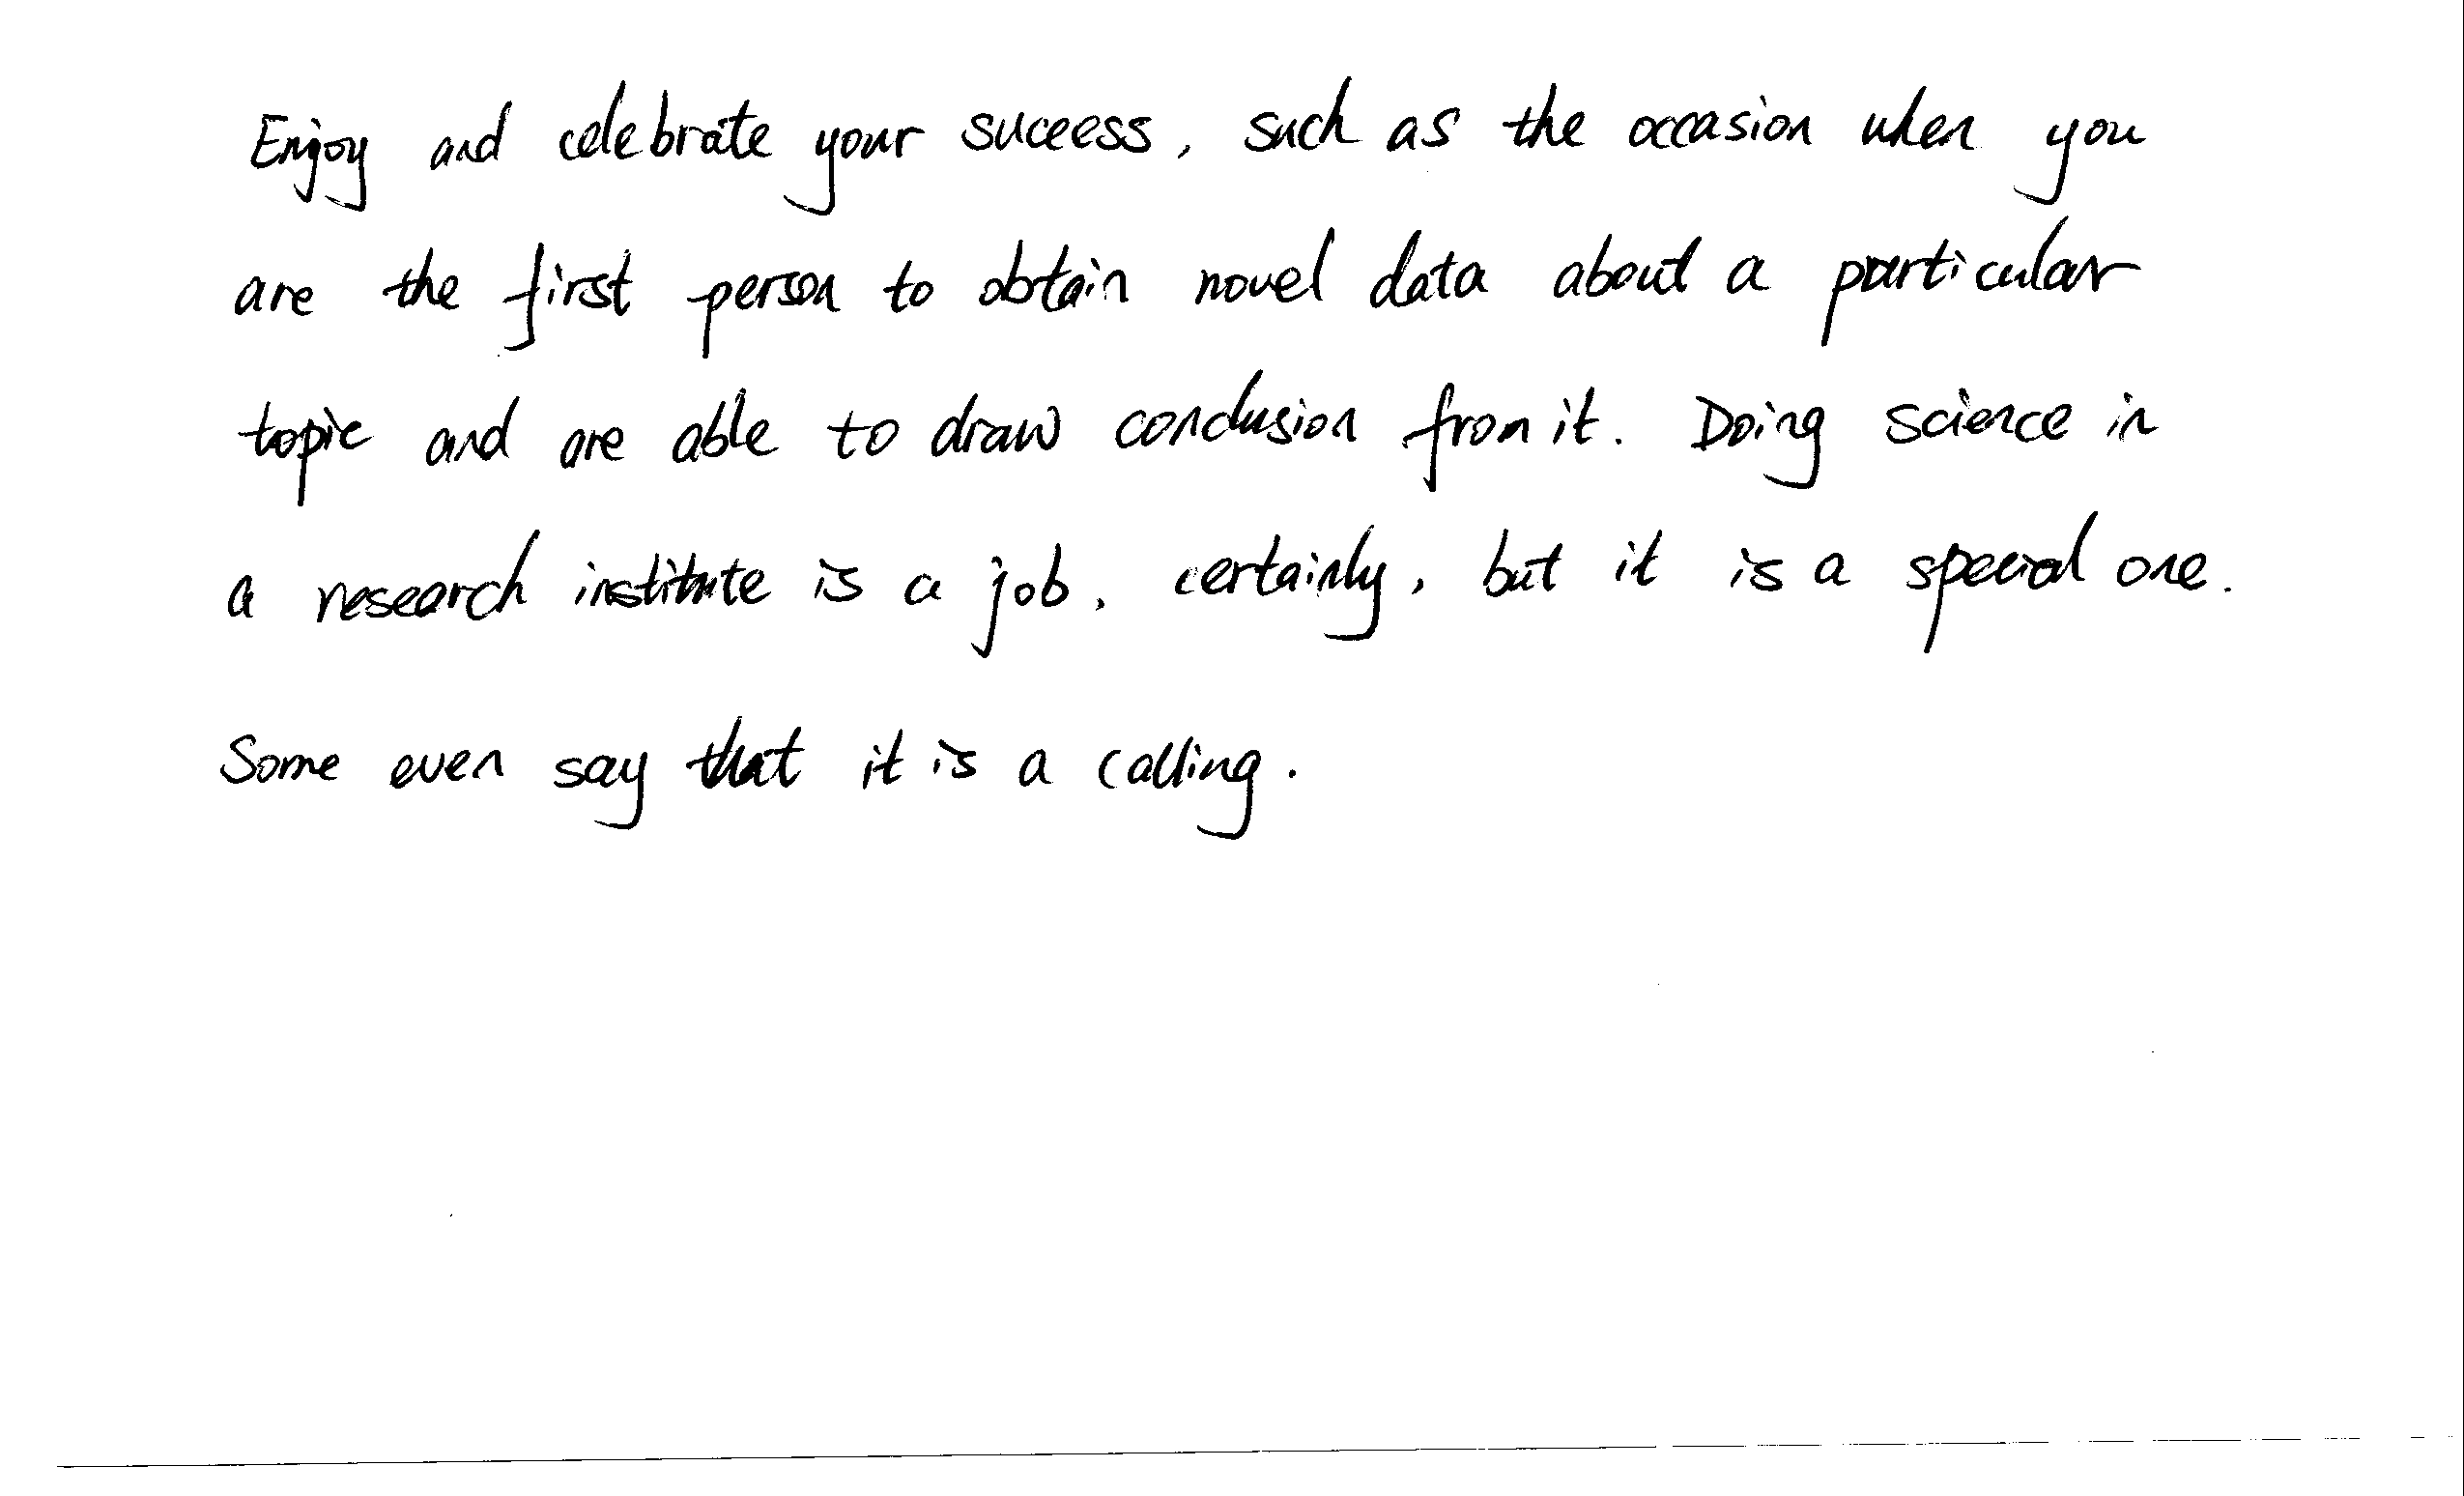 Enjoy and celebrate your success, such as the occasion when you
are the first person to obtain novel data about a particular
topic and are able to draw conclusion from it. Doing science in
a research institute is a job, certainly, but it is a special one.
Some even say that it is a calling.